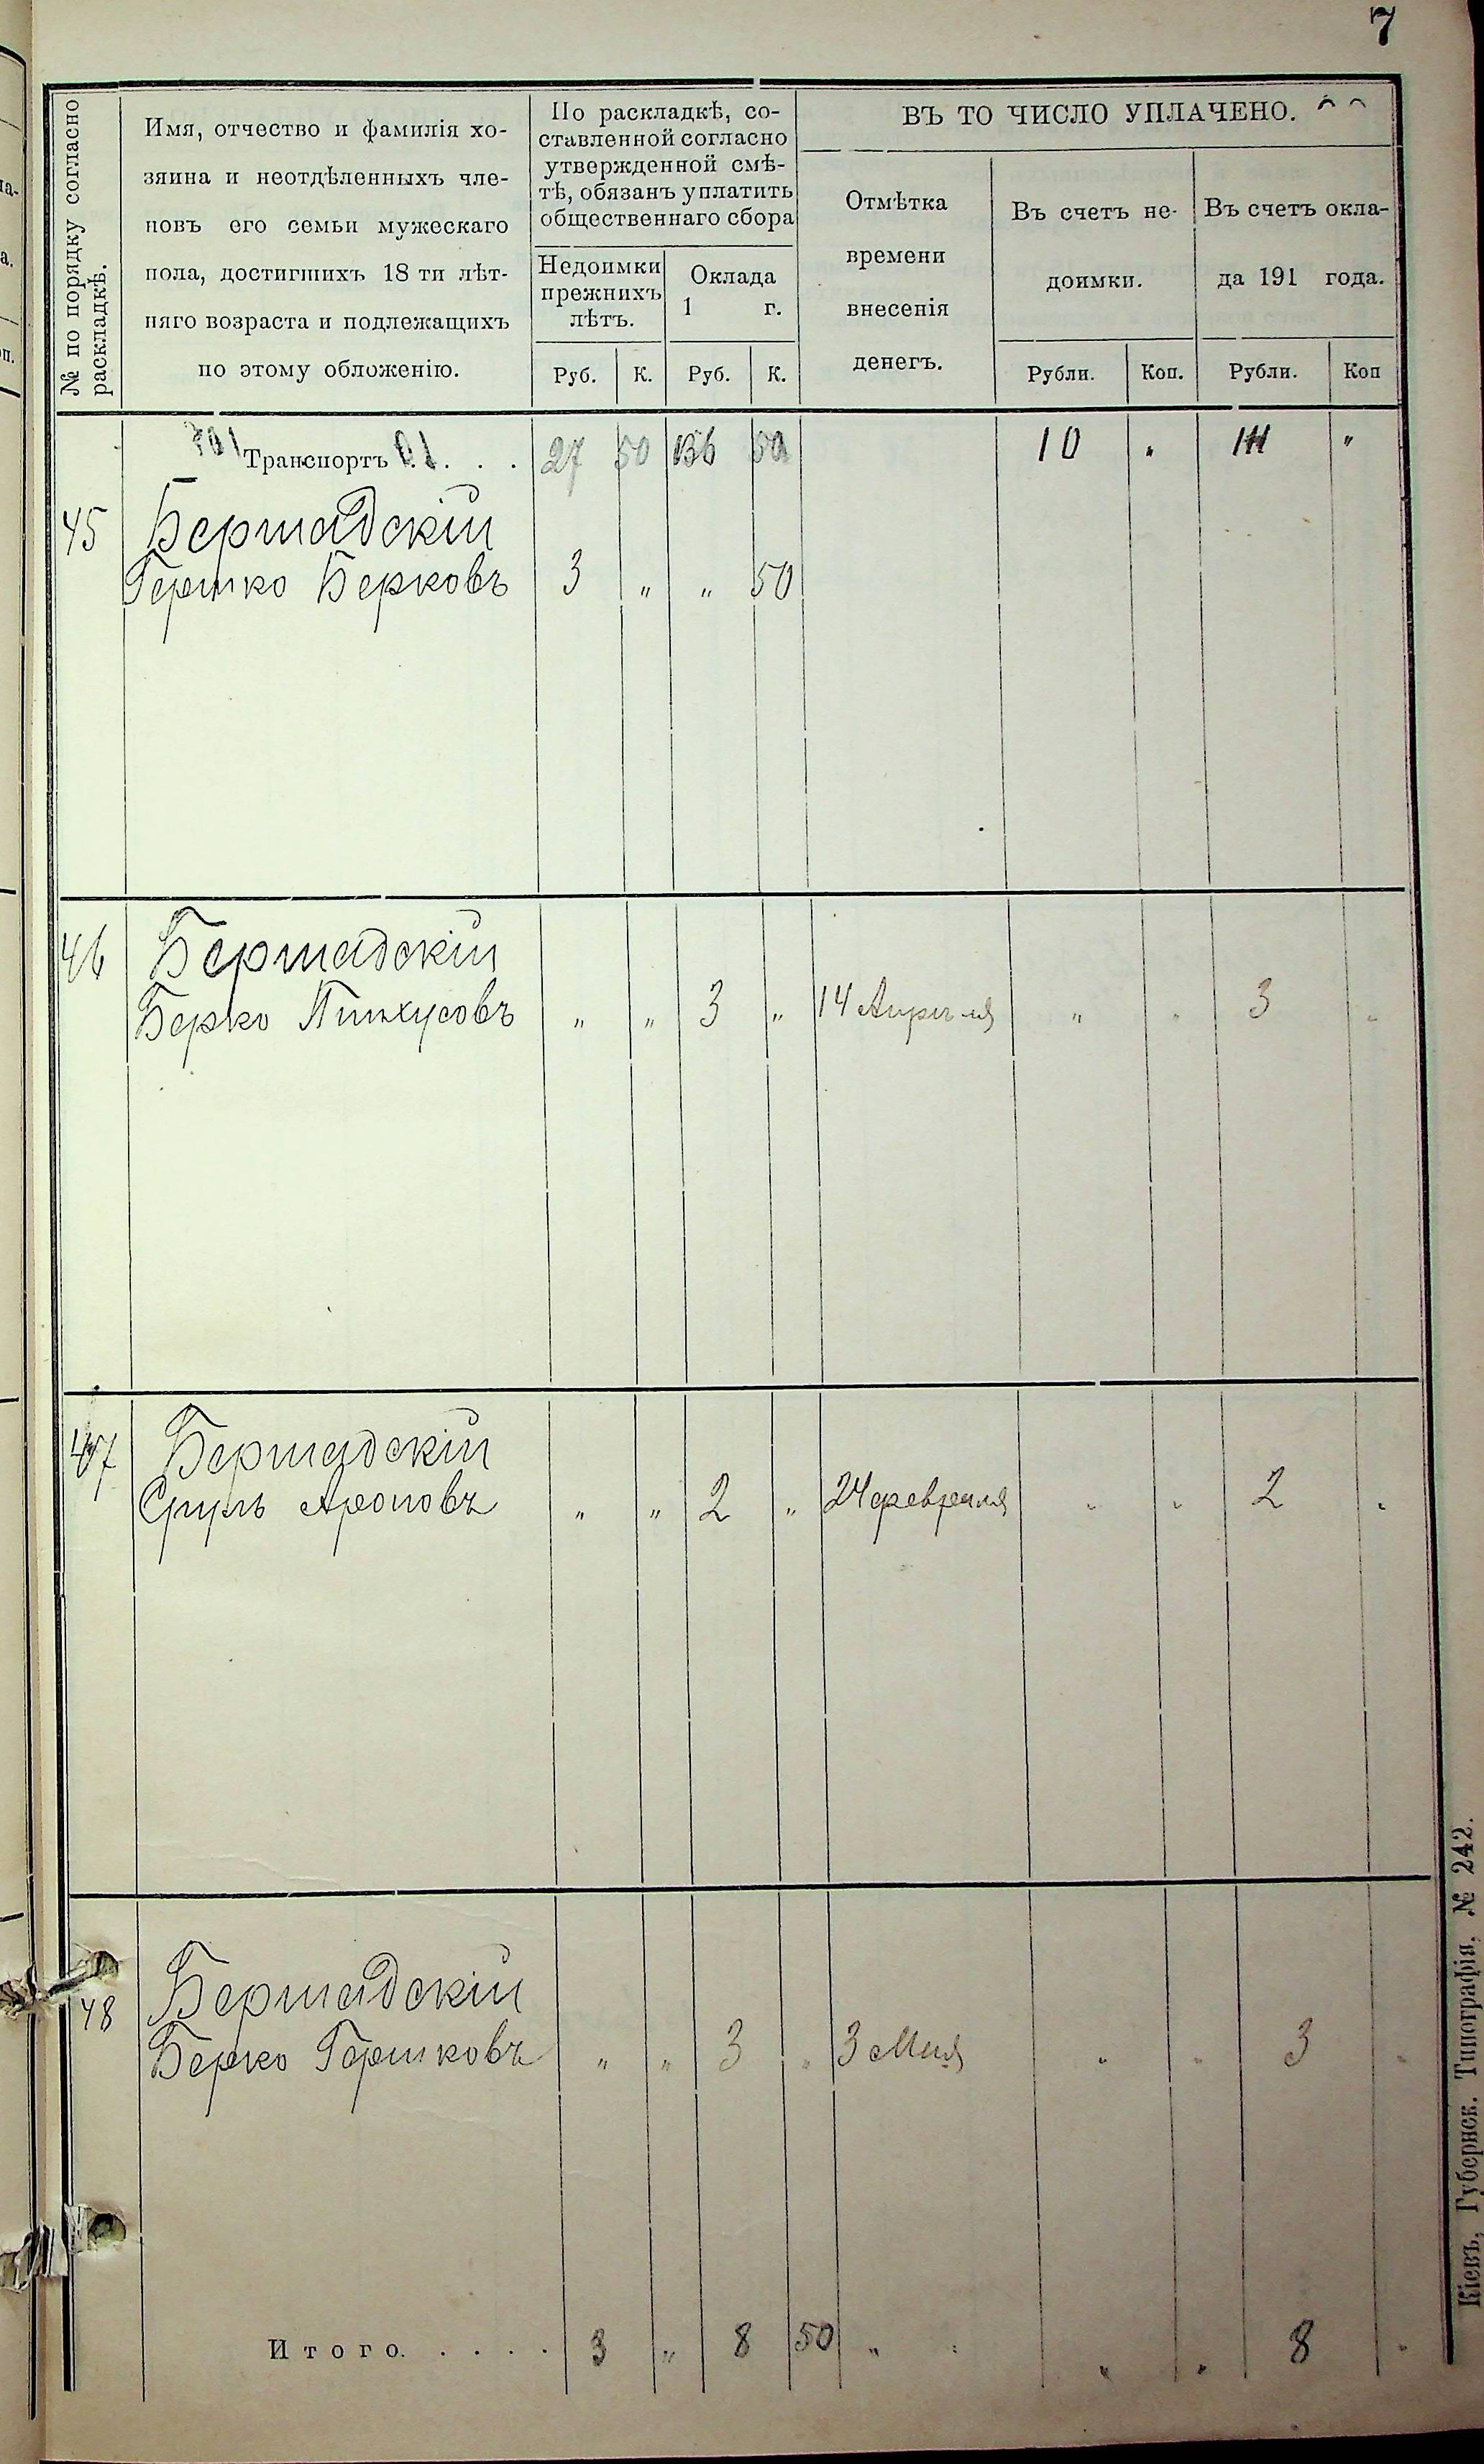 7
№ по порядку согласно
раскладкѣ.
Имя, отчество и фамилія хо-
зяина и неотдѣленныхъ чле-
новъ его семьи мужескаго
пола, достигшихъ 18 ти лѣт-
няго возраста и подлежащихъ
по этому обложенію.
По раскладкѣ, со-
ставленной согласно
утвержденной смѣ-
тѣ, обязанъ уплатить
общественнаго сбора
Недоимки
прежнихъ
лѣтъ.
Оклада
1 г.
Руб. К. Руб. К.
ВЪ ТО ЧИСЛО УПЛАЧЕНО.
Отмѣтка
времени
внесенія
денегъ.
Въ счетъ не-
доимки.
Въ счетъ окла-
да 191 года.
Рубли. Коп. Рубли. Коп
Транспортъ . . . 27 50 136 50 10 " 111 "
45 Бершадскій
Гершко Берковъ 3 " " 50
46 Бершадскій
Берко Пинхусовъ " " 3 " 14 Апрѣля " " 3 "
47 Бершадскій
Сруль Ароновъ " " 2 " 24 февраля " " 2 "
48 Бершадскій
Берко Гершковъ " " 3 " 3 Мая " " 3 "
Итого. . . . . 3 " 8 50 " " " 8 "
Кіевъ, Губернск. Типографія, № 242.